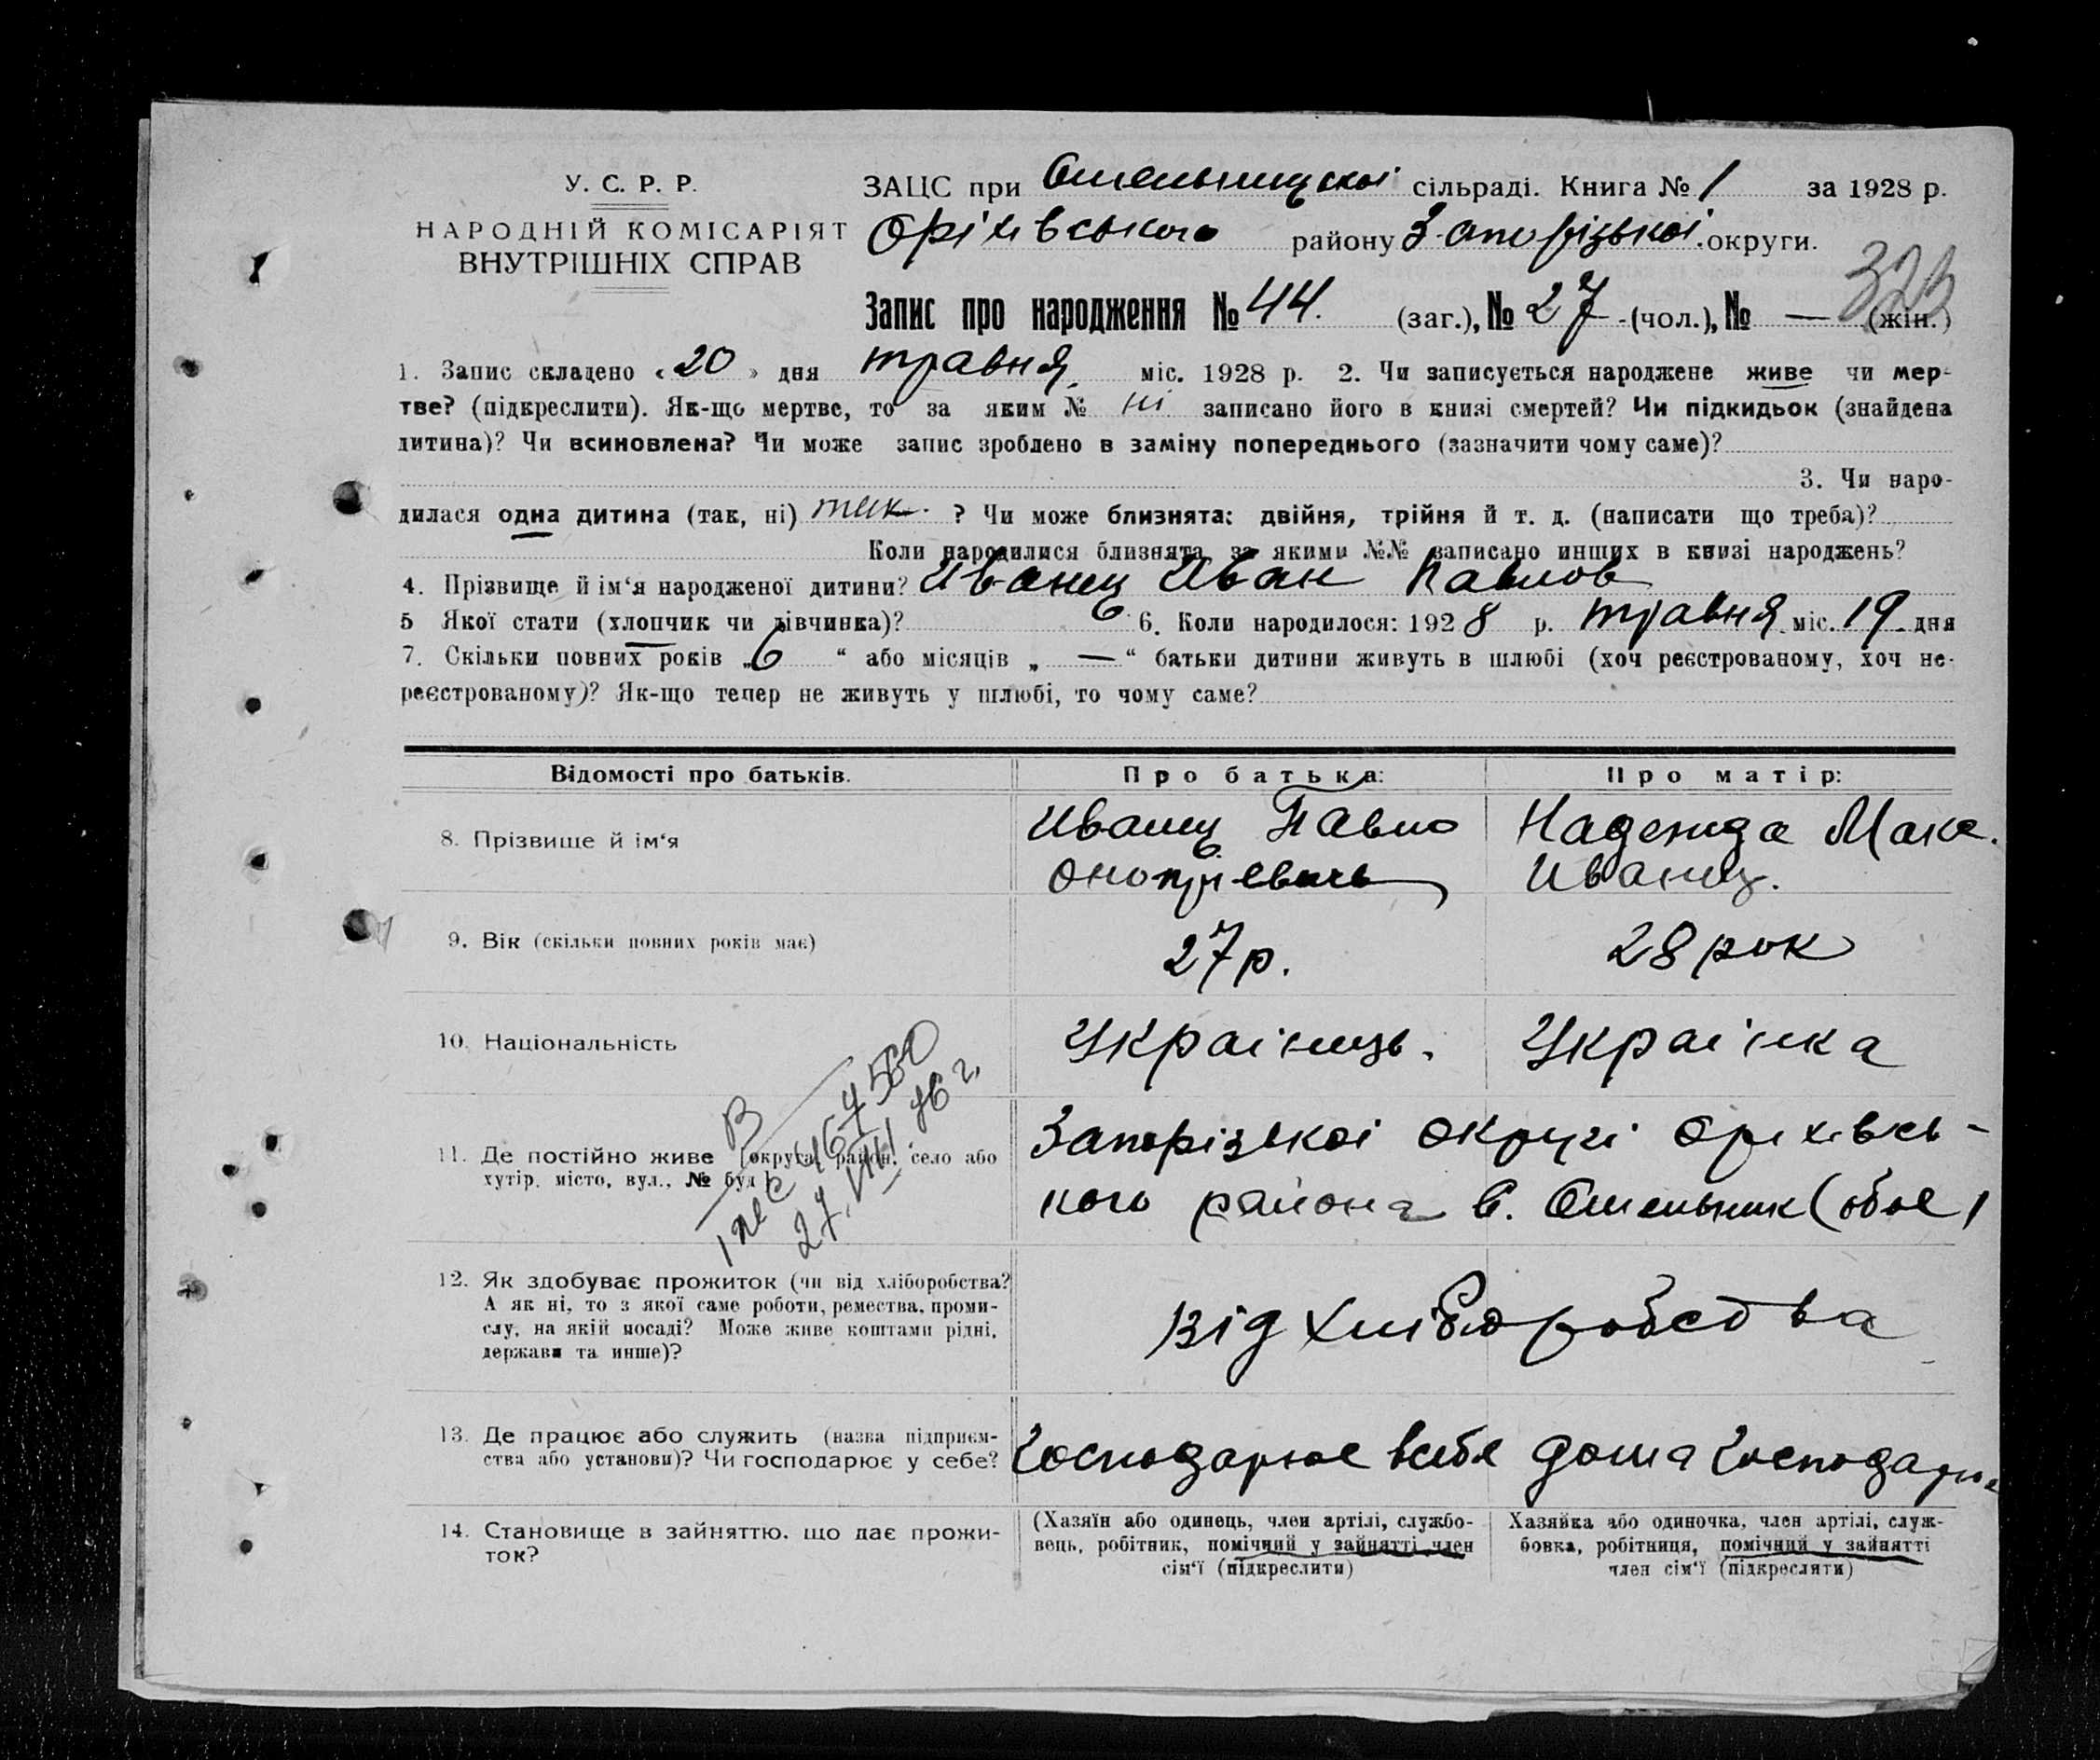 У. С. Р. Р.
НАРОДНІЙ КОМІСАРІЯТ
ВНУТРІШНІХ СПРАВ
ЗАЦС при Омельницкоі сільраді. Книга № 1 за 1928 р.
Оріхівського району Запорізькоі округи.
323
Запис про народження № 44. (заг.), № 27 (чол.), № — (жін.)
1. Запис складено «20» дня травня міс. 1928 р. 2. Чи записується народжене живе чи мер-
тве? (підкреслити). Як-що мертве, то за яким № ні записано його в книзі смертей? Чи підкидьок (знайдена
дитина)? Чи всиновлена? Чи може запис зроблено в заміну попереднього (зазначити чому саме)?
3. Чи наро-
дилася одна дитина (так, ні) так. ? Чи може близнята: двійня, трійня й т. д. (написати що треба)?
Коли народилися близнята, за якими №№ записано инших в книзі народжень?
4. Прізвище й ім‘я народженої дитини? Иванец Иван Павлов
5 Якої стати (хлопчик чи дівчинка)? 6. Коли народилося: 1928 р. травня міс. 19 дня
7. Скільки повних років „6“ або місяців „—“ батьки дитини живуть в шлюбі (хоч реєстрованому, хоч не-
реєстрованому)? Як-що тепер не живуть у шлюбі, то чому саме?
Відомості про батьків. Про батька: Про матір:
8. Прізвище й ім‘я
Иванец Павло
Онопріевичь
Надежда Мак.
Иванец.
9. Вік (скільки повних років має) 27 р. 28 рок
10. Національність Украінець. Украінка
11. Де постійно живе (округа, район, село або
хутір, місто, вул., № буд.)
Запорізькоі округі Оріхівсь-
кого района с. Омельник (обое)
В
467560
27.VIII 76 г.
12. Як здобуває прожиток (чи від хліборобства?
А як ні, то з якої саме роботи, ремества, проми-
слу, на якій посаді? Може живе коштами рідні,
держави та инше)?
від хліборобства
13. Де працює або служить (назва підприєм-
ства або установи)? Чи господарює у себе?
Господарюе всебе дома Господарюе
14. Становище в зайняттю, що дає прожи-
ток?
(Хазяїн або одинець, член артілі, службо-
вець, робітник, помічний у зайнятті член
сім‘ї (підкреслити)
Хазяйка або одиночка, член артілі, служ-
бовка, робітниця, помічний у зайнятті
член сім‘ї (підкреслити)